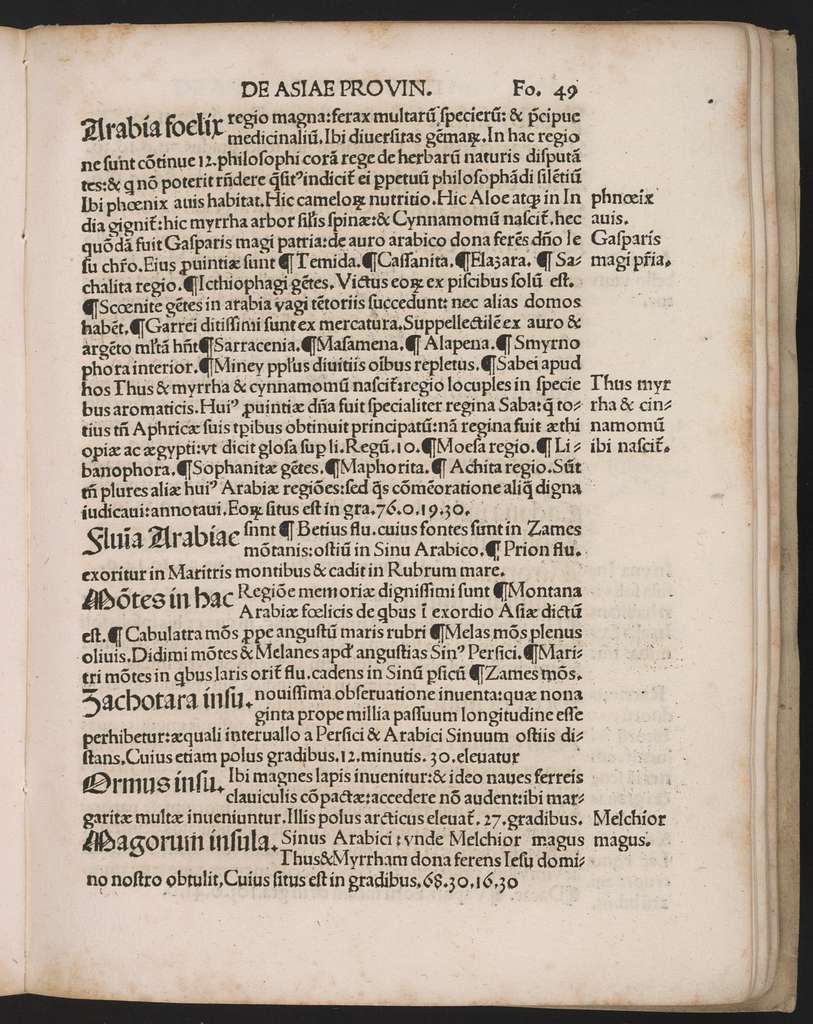 DE ASIAE PROVIN. Fo. 49
Arabia foelix regio magna:ferax multarũ specierũ: & p̃cipue
medicinaliũ.Ibi diuersitas gẽmaꝝ.In hac regio
ne sunt cõtinue 12.philosophi corã rege de herbarũ naturis disputã
tes:& q nõ poterit rñdere q̃sit⁹indicit̃ ei ꝑpetuũ philosophãdi silẽtiũ
Ibi phœnix auis habitat.Hic cameloꝝ nutritio.Hic Aloe atqꝫ in In phnœix
dia gignit̃:hic myrrha arbor sil̃is spinæ:& Cynnamomũ nascit̃.hec auis.
quõdã fuit Gasparis magi patria:de auro arabico dona ferẽs dño Ie Gasparis
su chr̃o.Eius ꝓuintiæ sunt ¶ Temida.¶Cassanita.¶Elazara. ¶ Sa⸗ magi pr̃ia.
chalita regio.¶Icthiophagi gẽtes. Victus eoꝝ ex piscibus solũ est.
¶Scœnite gẽtes in arabia vagi tẽtoriis succedunt: nec alias domos
habẽt.¶Garrei ditissimi sunt ex mercatura.Suppellectilẽ ex auro &
argẽto ml̃tã hñt¶Sarracenia.¶Masamena.¶ Alapena.¶ Smyrno
phora interior.¶Miney ppl̃us diuitiis oĩbus repletus.¶Sabei apud
hos Thus & myrrha & cynnamomũ nascit̃:regio locuples in specie Thus myr
bus aromaticis.Hui⁹ ꝓuintiæ dña fuit specialiter regina Saba:q̃ to⸗ rha & cin⸗
tius tñ Aphricæ suis tꝑibus obtinuit principatũ:nã regina fuit æthi namomũ
opiæ ac ægypti:vt dicit glosa sup li.Regũ.10.¶Moesa regio.¶ Li⸗ ibi nascit̃.
banophora.¶Sophanitæ gẽtes.¶Maphorita.¶ Achita regio.Sũt
tñ plures aliæ hui⁹ Arabiæ regiões:sed q̃s cõmẽoratione aliq̃ digna
iudicaui:annotaui.Eoꝝ situs est in gra.76.0.19.30.
Fluuia Arabiae snnt ¶ Betius flu.cuius fontes sunt in Zames
mõtanis:ostiũ in Sinu Arabico.¶ Prion flu.
exoritur in Maritris montibus & cadit in Rubrum mare.
Mõtes in hac Regiõe memoriæ dignissimi sunt ¶Montana
Arabiæ fœlicis de qbus ĩ exordio Asiæ dictũ
est.¶ Cabulatra mõs ꝓpe angustũ maris rubri ¶Melas mõs plenus
oliuis.Didimi mõtes & Melanes apd' angustias Sin⁹ Persici.¶Mari⸗
tri mõtes in qbus laris orit̃ flu.cadens in Sinũ ꝑsicũ ¶Zames mõs.
Zachotara insu. nouissima obseruatione inuenta:quæ nona
ginta prope millia passuum longitudine esse
perhibetur:æquali interuallo a Persici & Arabici Sinuum ostiis di⸗
stans.Cuius etiam polus gradibus.12.minutis. 30.eleuatur
Ormus insu. Ibi magnes lapis inuenitur:& ideo naues ferreis
clauiculis cõpactæ:accedere nõ audent:ibi mar⸗
garitæ multæ inueniuntur.Illis polus arcticus eleuat̃. 27.gradibus. Melchior
Magorum insula. Sinus Arabici : vnde Melchior magus magus.
Thus&Myrrham dona ferens Iesu domi⸗
no nostro obtulit,Cuius situs est in gradibus.68.30.16.30